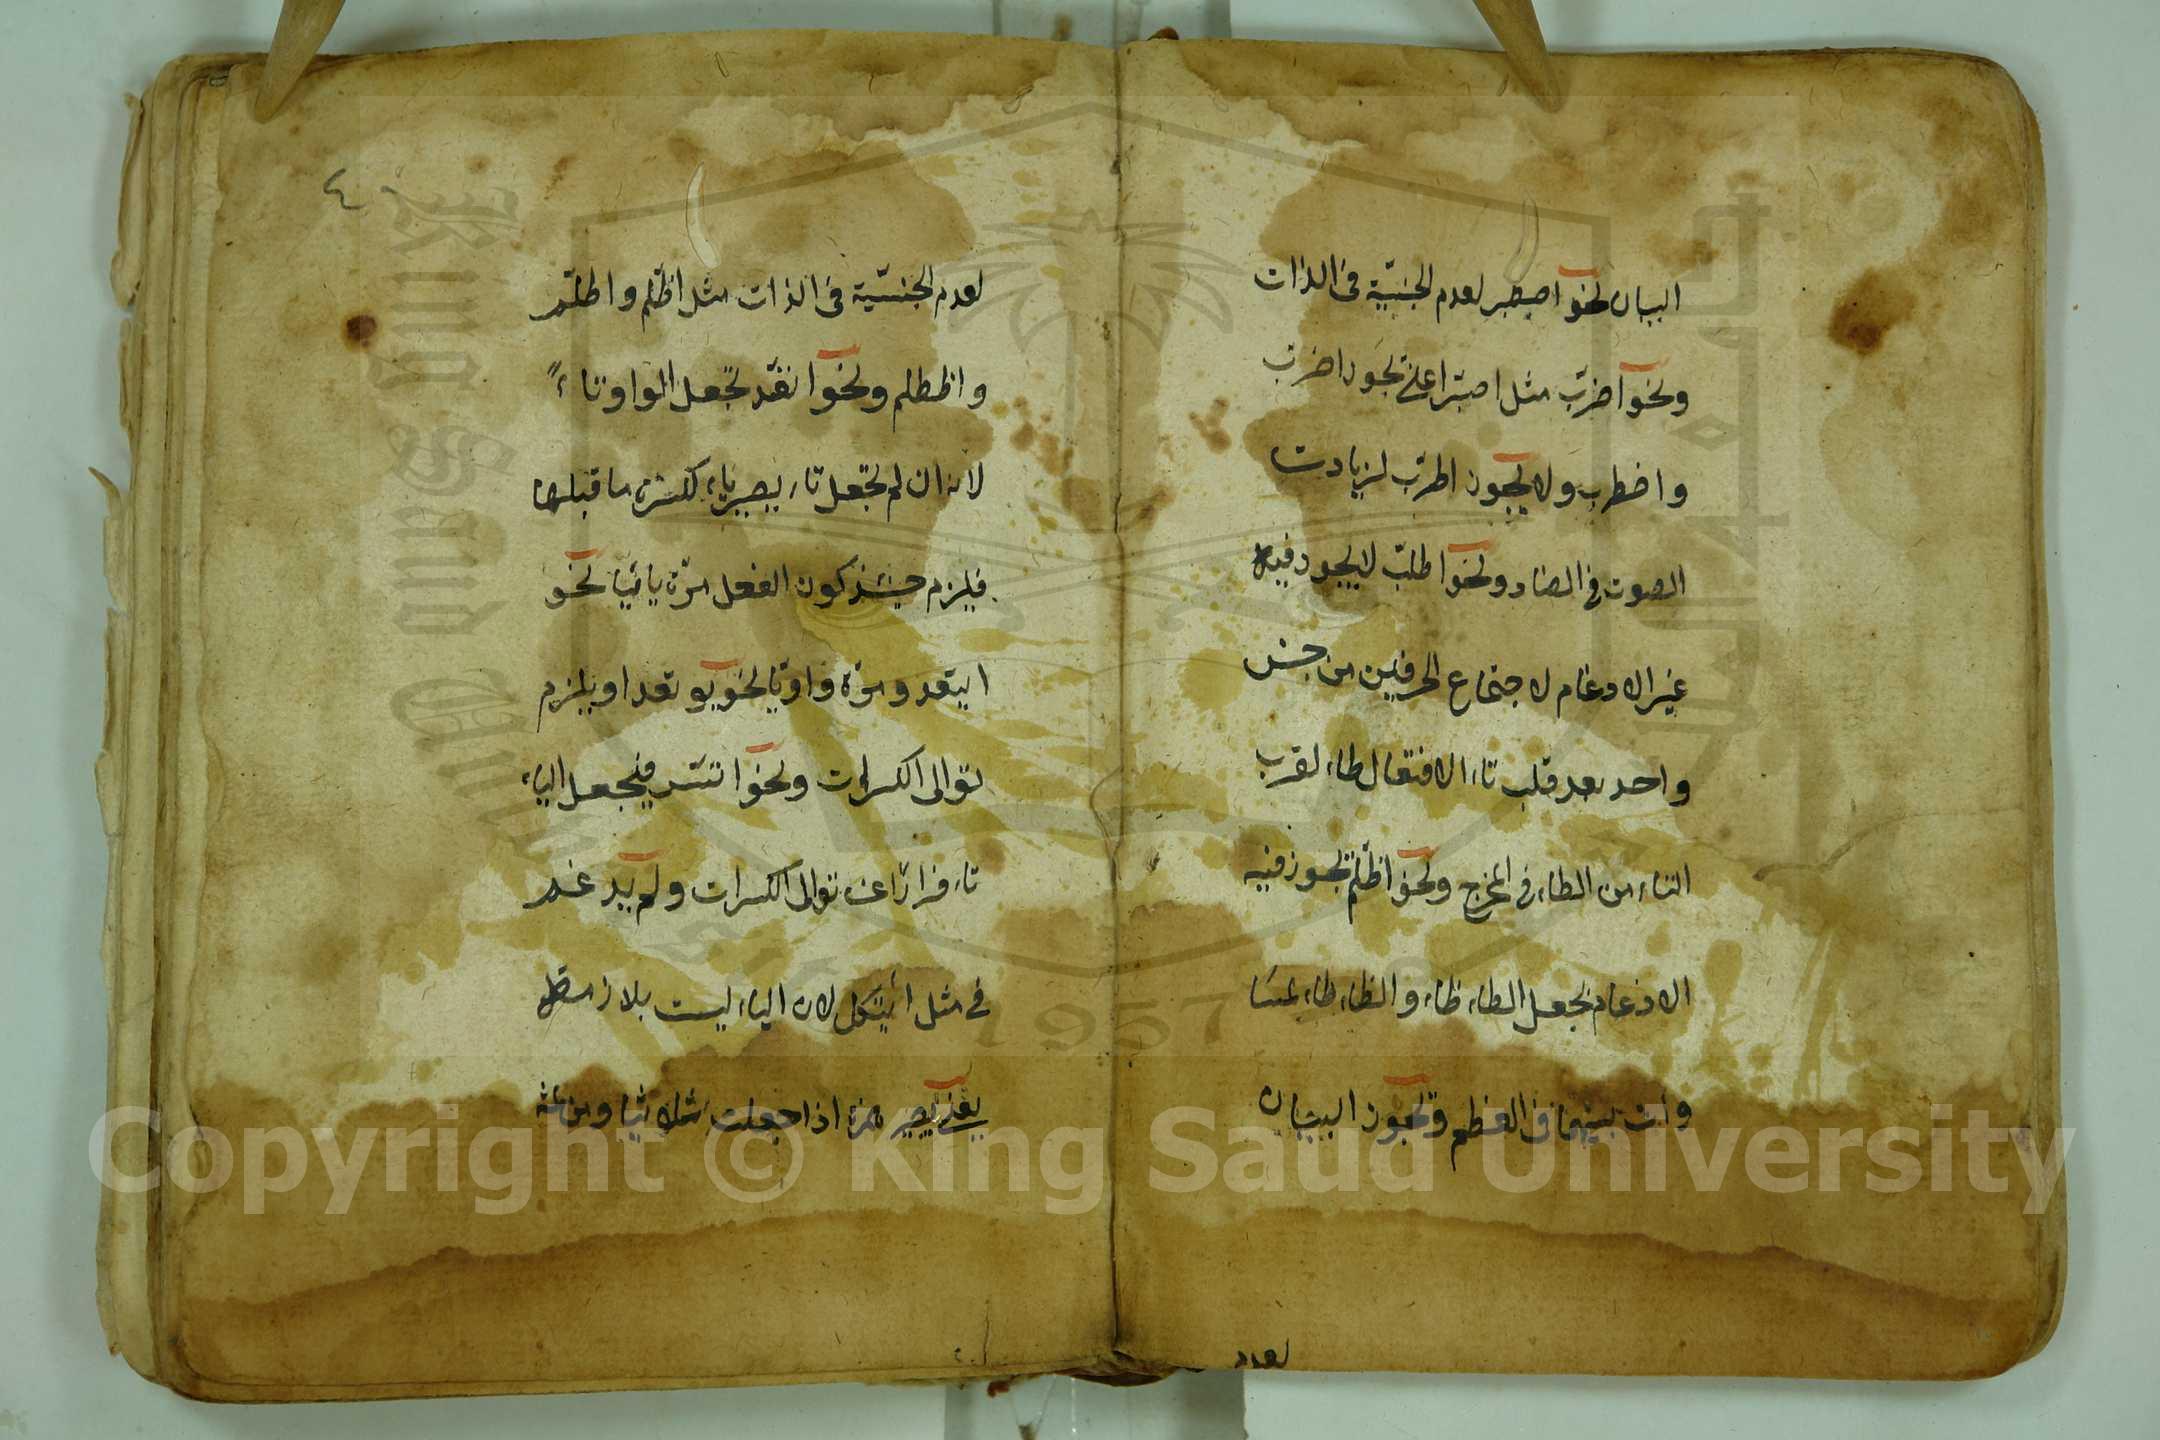 البيان نحو اصطبر لعدم الجنسيّة في الذات
ونحو اضرّب مثل اصّبر اعني يجوز اضرّب
واضطرب ولا يجوز اطّرب لزيادت
الصوت في الضاد ونحو اطّلب لا يجوز فيه
غير الادغام لاجتماع الحرفين من جنس
واحد بعد قلب تاء الافتعال طاء لقرب
التاء من الطاء في المخرج ونحو اظّلم يجوز فيه
الادغام بجعل الطاء ظاء والظاء طاء لمسا
وات بينهما في العظم ويجوز البيان
لعدم
٤٠
لعدم الجنسيّة في الذات مثل اظّلم واطّلم
واظطلم ونحو اتّقد تجعل الواو تاءً
لانه ان لم تجعل تاء يصير ياء لكسرة ما قبلها
فيلزم حينئذ كون الفعل مرّة يائيّا نحو
ايتقد ومرّة واويّا نحو يوتقد او يلزم
توالى الكسرات ونحو اتّسر فيجعل الياء
تاء فرارا عن توالى الكسرات ولم يدغم
في مثل ايتكل لان الياء ليست بلازمة
يعني يصير همزة اذا جعلت ثلاثيا ومن ثمّه
Copyright © King Saud University
King Saud University
1957